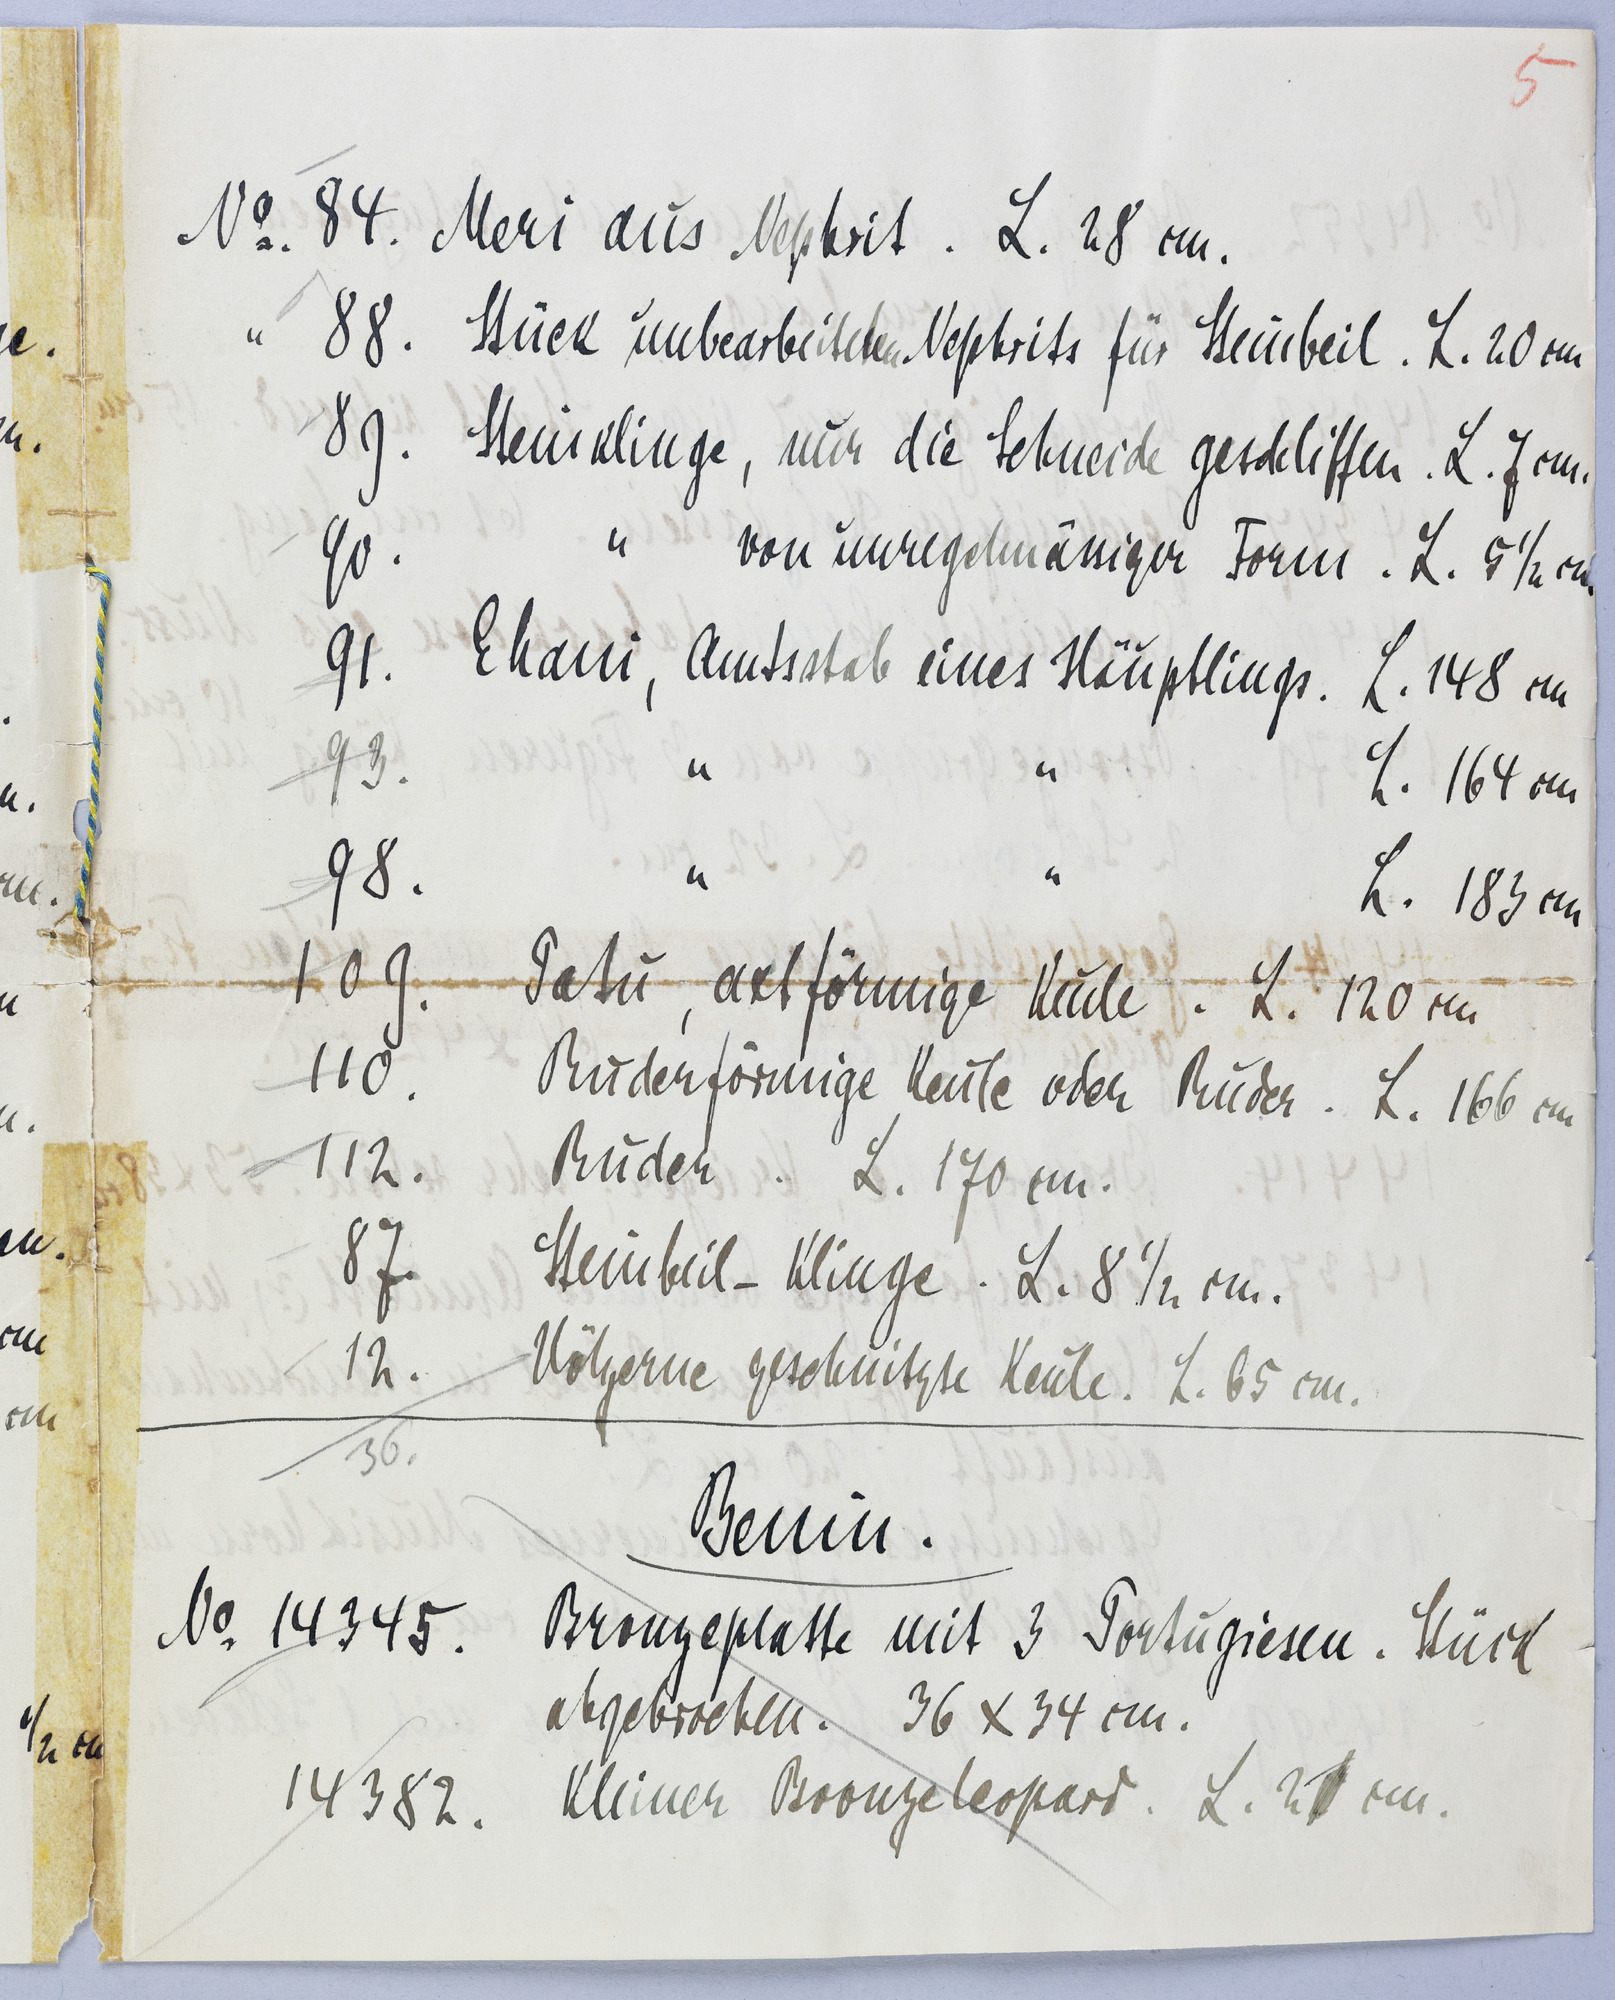 5
No. 84. Meri aus Nephrit. L. 28 cm.
" 88. Stück unbearbeiteten Nephrits für Steinbeil. L. 20 cm
89. Steinklinge, nur die Schneide geschliffen. L. 7 cm.
90. " von unregelmässiger Form. L. 5 1/2 cm
91. Ehani, Amtsstab eines Häuptlings. L. 148 cm
93. " " L. 164 cm
98. " " L. 183 cm
109. Patu, axtförmige Keule. L. 120 cm
110. Ruderförmige Keule oder Ruder. L. 166 cm
112. Ruder. L. 170 cm.
87. Steinbeil-Klinge. L. 8 1/2 cm.
12. Hölzerne geschnitzte Keule. L. 65 cm.
36.
Benin.
No. 14345. Bronzeplatte mit 3 Portugiesen. Stück
abgebrochen. 36 x 34 cm.
14382. Kleiner Bronzeleopard. L. 21 cm.